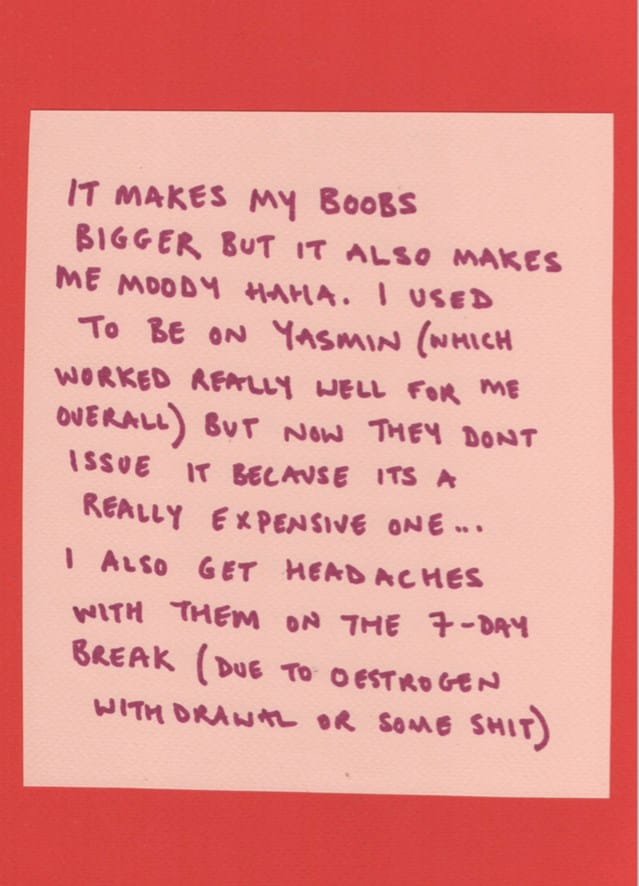 IT MAKES MY BOOBS
BIGGER BUT IT ALSO MAKES
ME MOODY HAHA. I USED
TO BE ON YASMIN (WHICH
WORKED REALLY WELL FOR ME
OVERALL) BUT NOW THEY DONT
ISSUE IT BECAUSE ITS A
REALLY EXPENSIVE ONE...
I ALSO GET HEADACHES
WITH THEM ON THE 7-DAY
BREAK (DUE TO OESTROGEN
WITHDRAWAL OR SOME SHIT)